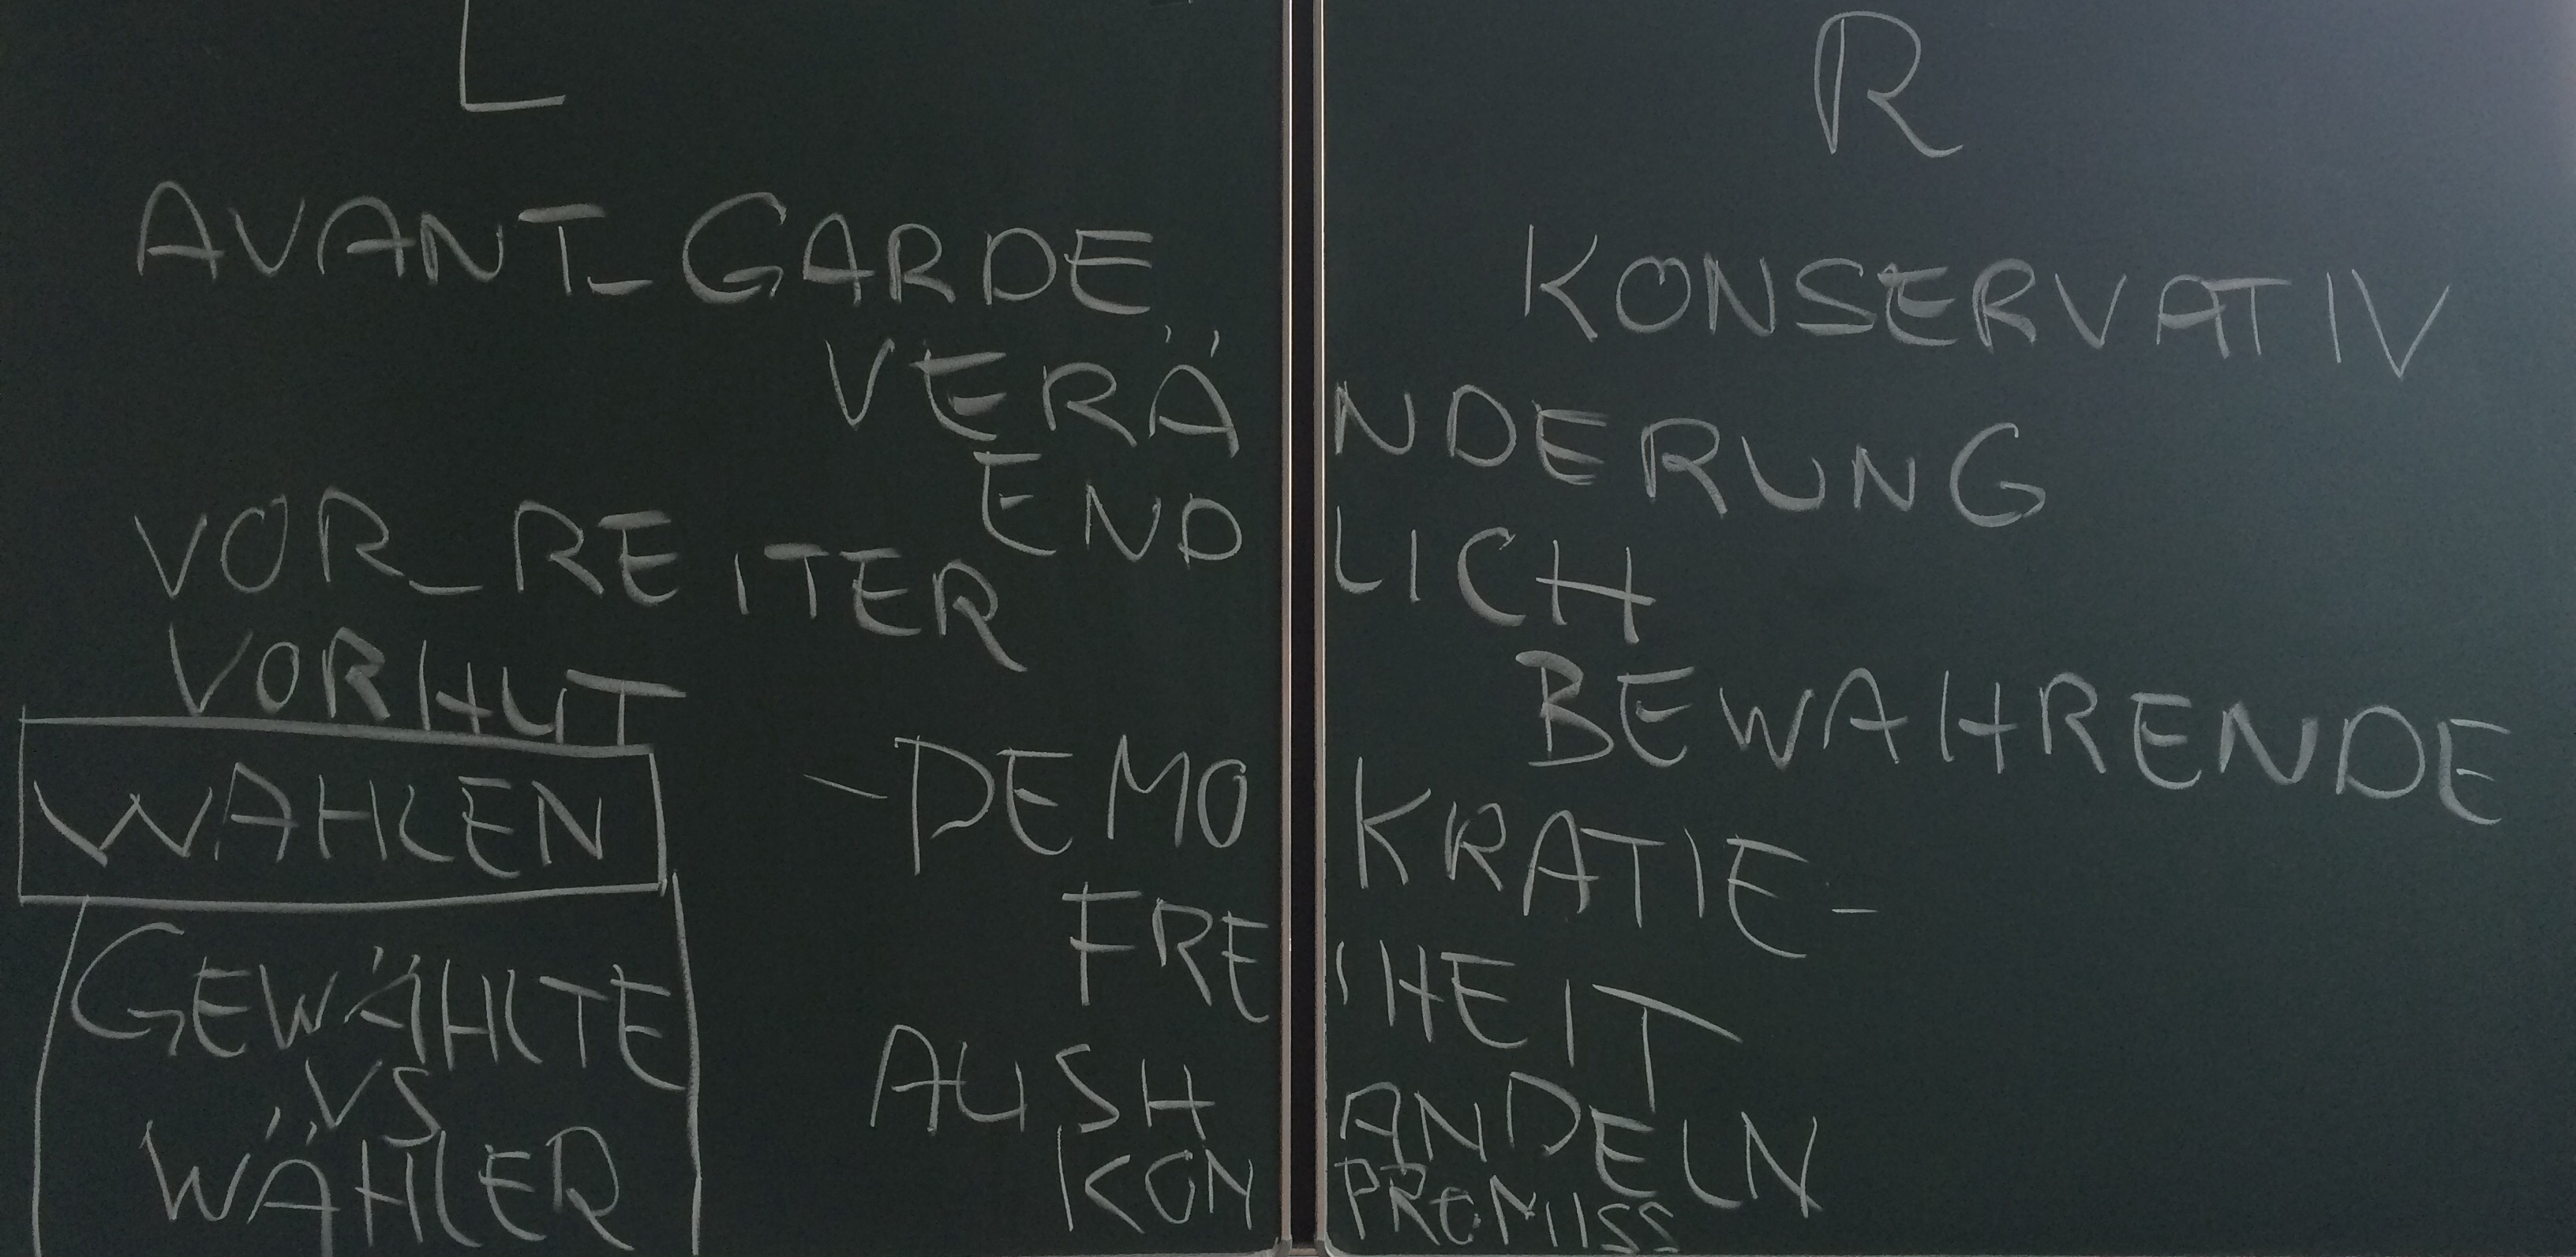 L
R
AVANT-GARDE
KONSERVATIV
VERÄNDERUNG
ENDLICH
VOR-REITER
VORHUT
BEWAHRENDE
WAHLEN
-DEMOKRATIE-
FREIHEIT
GEWÄHLTE
VS
WÄHLER
AUSHANDELN
KONPROMISS